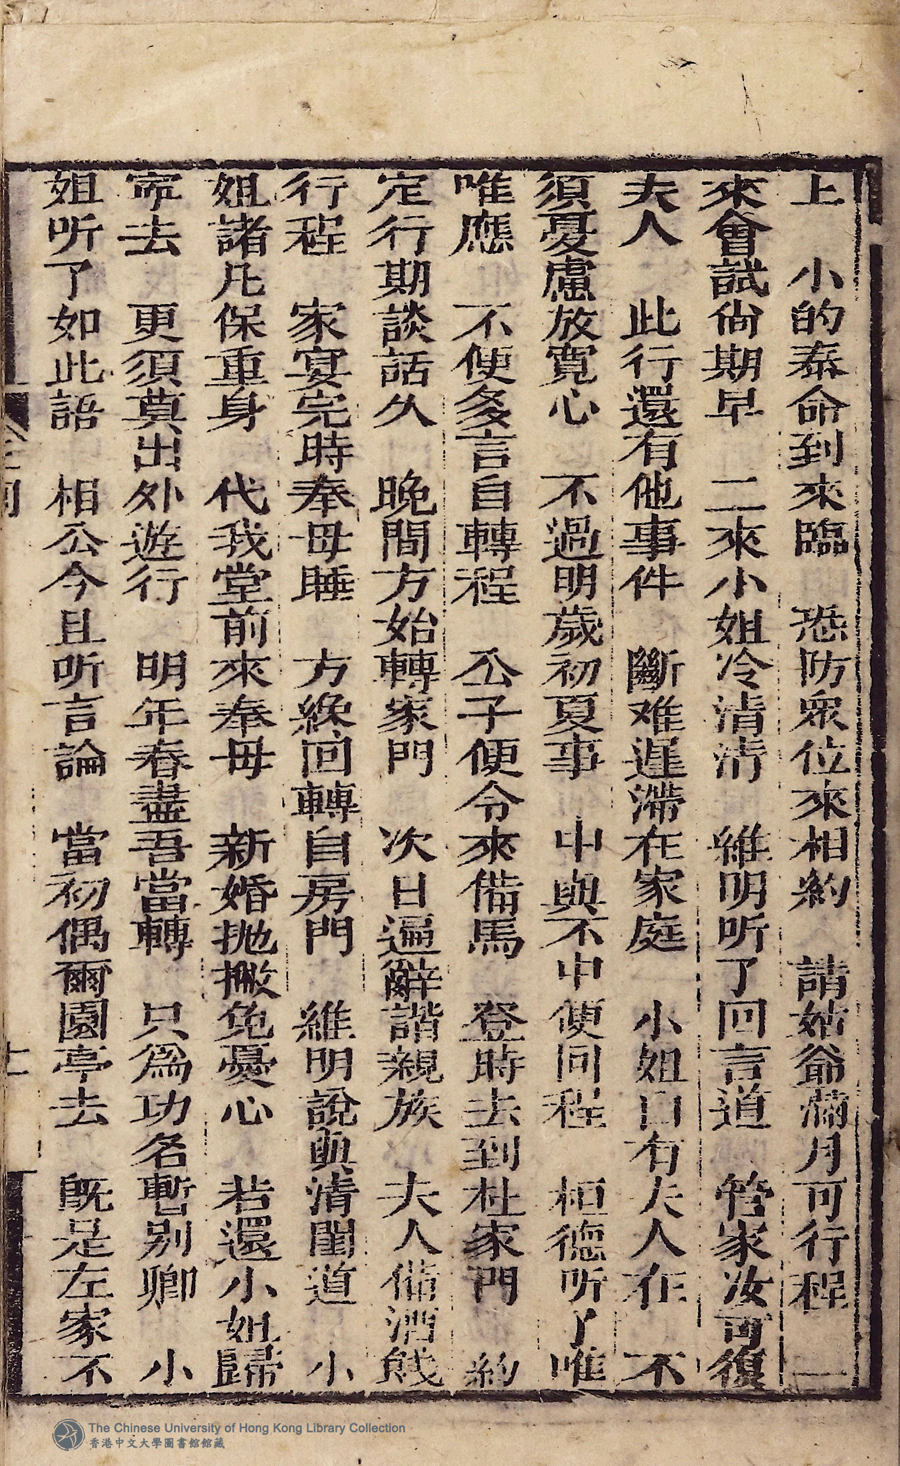 上　小的奉命到來臨　恐防眾位來相約　請姑爺滿月可行程　一
來會試尙期早　二來小姐冷清清　維明听了回言道　管家汝可復
夫人　此行還有他事件　斷难遲滯在家庭　小姐自有夫人在　不
須憂慮放寬心　不過明歲初夏事　中與不中便回程　桓德听了唯
唯應　不便多言自轉程　公子便令來備馬　登時去到杜家門　約
定行期談話久　晚間方始轉家門　次日遍辭諧親族　夫人備酒餞
行程　家宴完時奉母睡　方纔回轉自房門　維明說與清閨道　小
姐諸凡保重身　代我堂前來奉母　新婚抛撇免憂心　若還小姐歸
寧去　更須莫出外遊行　明年春盡吾當轉　只爲功名暫别卿　小
姐听了如此語　相公今且听言論　當初偶爾園亭去　旣是左家不
十一
The Chinese University of Hong Kong Library Collection
香港中文大學圖書館館藏